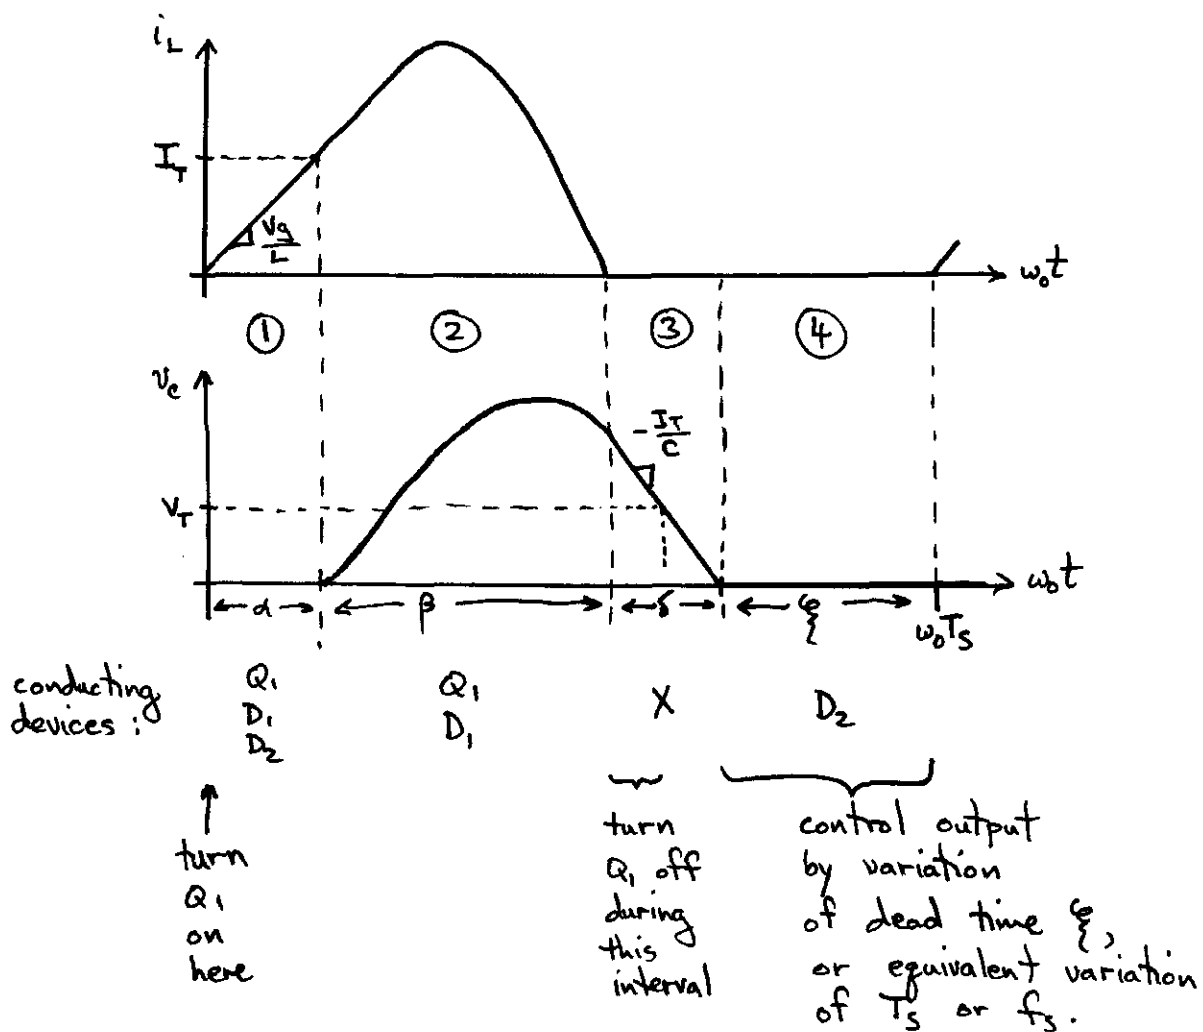 i_L
I_T
Vg/L
ω₀t
① ② ③ ④
v_c
-I_T/C
V_T
ω₀t
α β δ ξ
ω₀T_s
conducting devices:
Q₁ Q₁ X D₂
D₁ D₁
D₂
turn
Q₁
on
here
turn
Q₁ off
during
this
interval
control output
by variation
of dead time ξ,
or equivalent variation
of T_s or f_s.